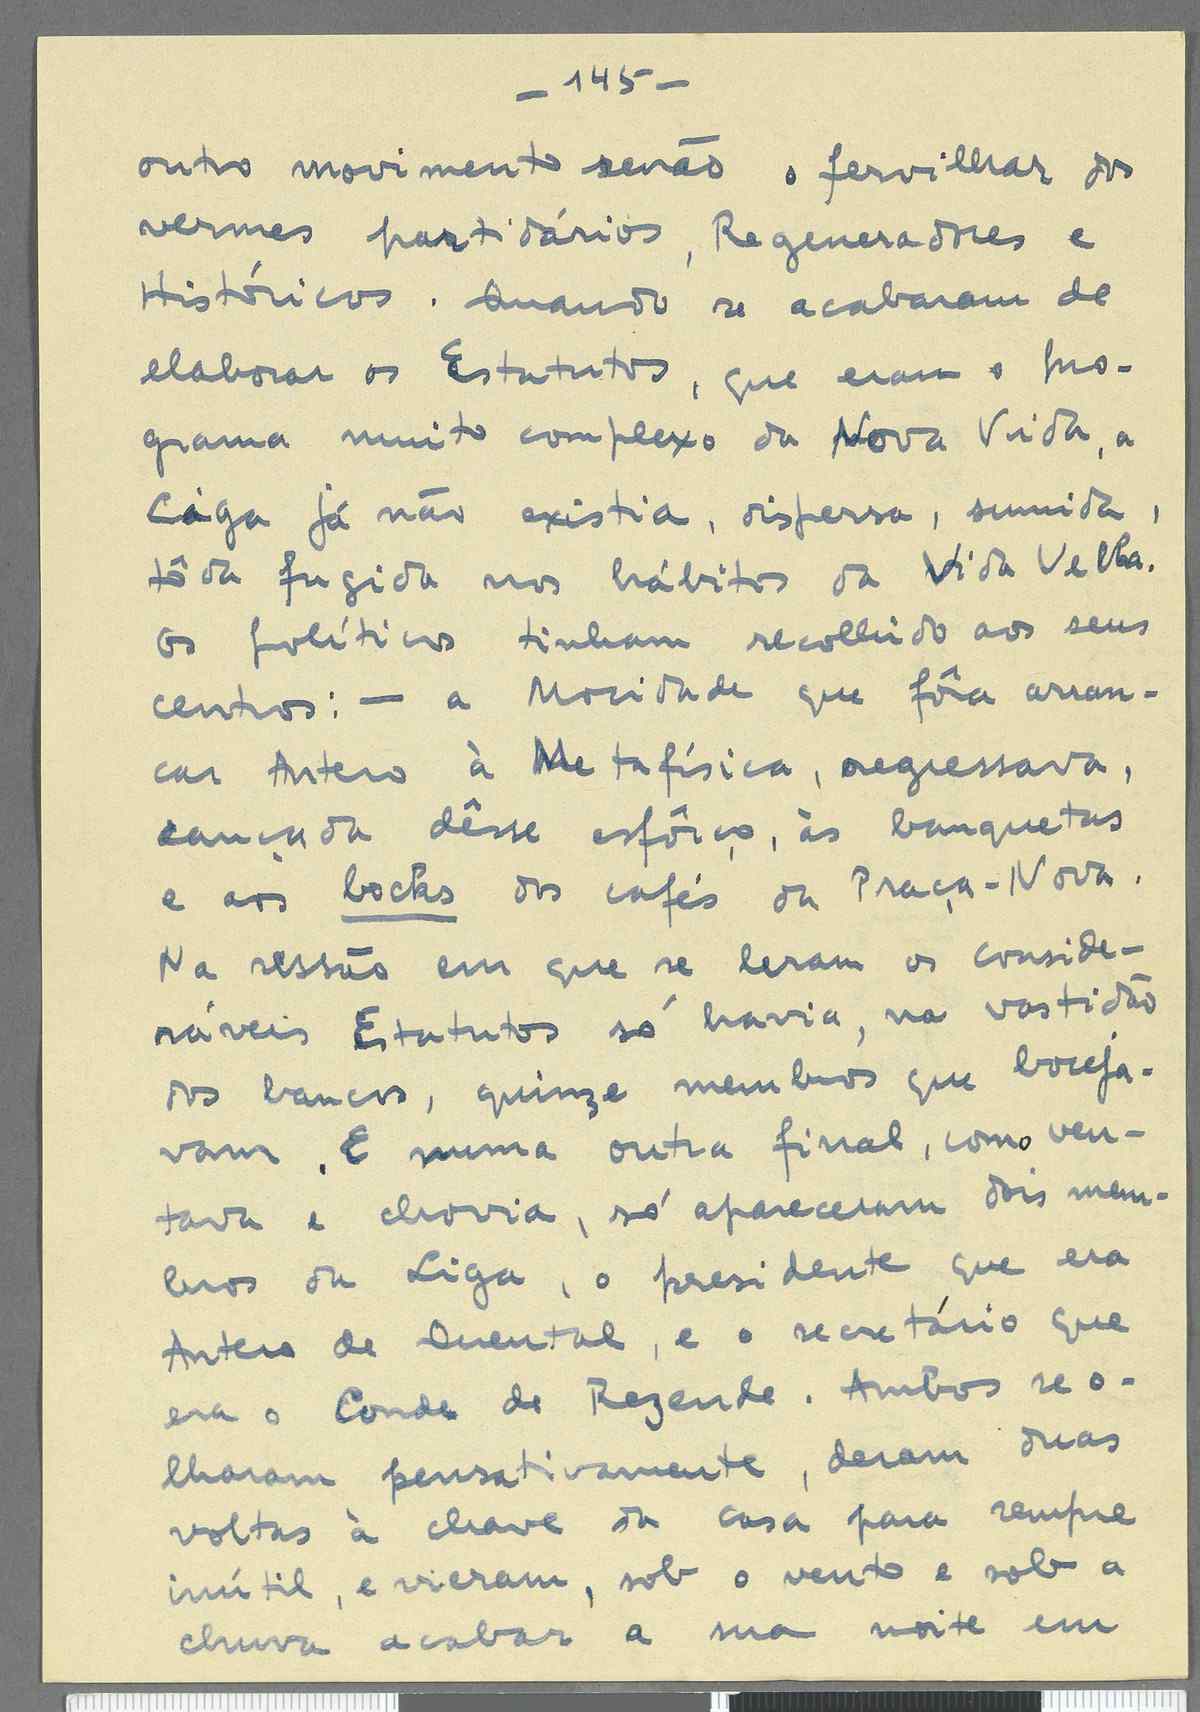 – 145 –
outro movimento senão o fervilhar dos
vermes partidários, Regeneradores e
Históricos. Quando se acabaram de
elaborar os Estatutos, que eram o pro-
grama muito complexo da Nova Vida, a
Liga já não existia, dispersa, sumida,
tôda fugida nos hábitos da Vida Velha.
Os políticos tinham recolhido aos seus
centros: — a Mocidade que fôra arran-
car Antero à Metafísica, regressava,
cançada dêsse esfôrço, às banquetas
e aos bocks dos cafés da Praça-Nova.
Na sessão em que se leram os conside-
ráveis Estatutos só havia, na vastidão
dos bancos, quinze membros que boceja-
vam. E numa outra final, como ven-
tava e chovia, só apareceram dois mem-
bros da Liga, o presidente que era
Antero de Quental, e o secretário que
era o Conde de Rezende. Ambos se o-
lharam pensativamente, deram duas
voltas à chave da casa para sempre
inútil, e vieram, sob o vento e sob a
chuva acabar a sua noite em